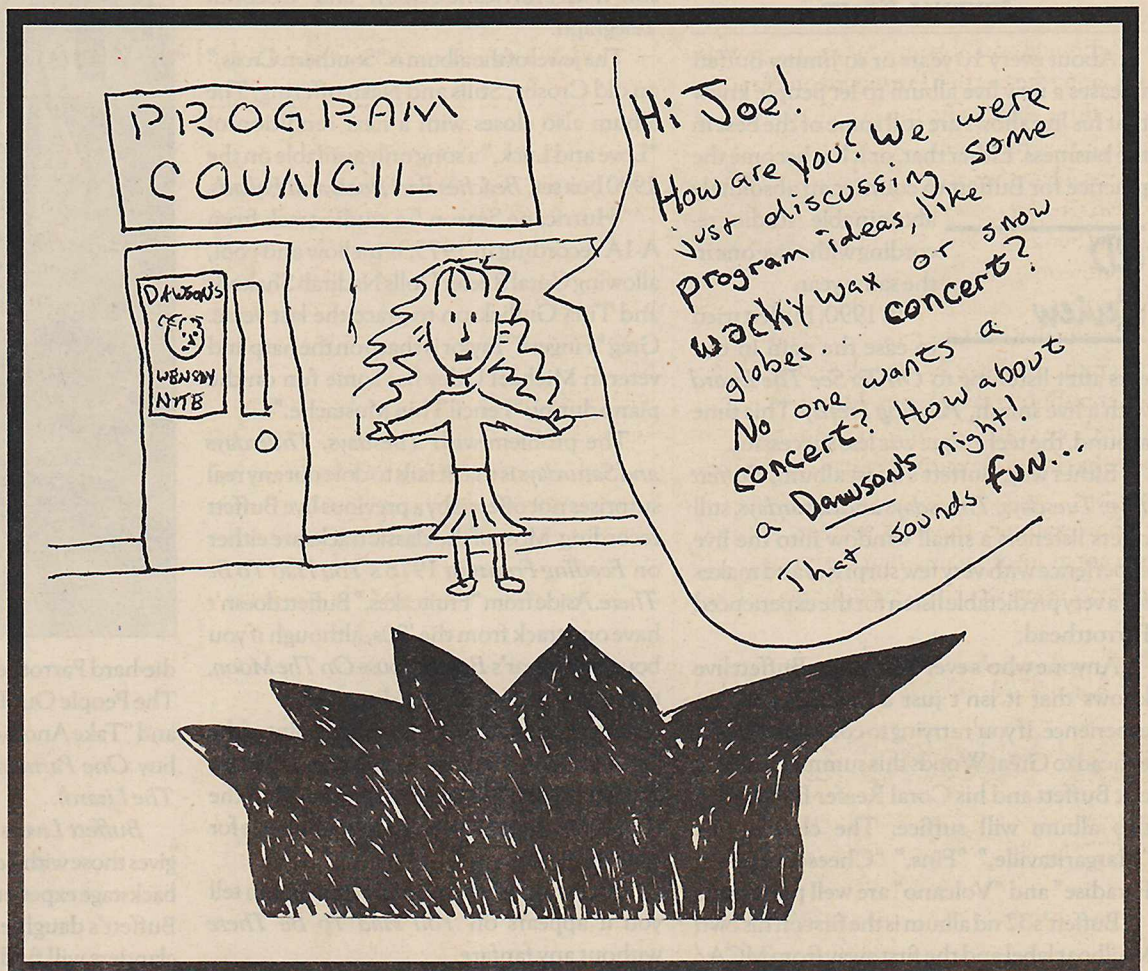 PROGRAM
COUNCIL
DAWSON'S
NITE
Hi Joe!
How are you? We were
just discussing some
program ideas, like
wacky wax or snow
globes... concert?
No one wants a
concert? How about
a Dawson's night!
That sounds fun...